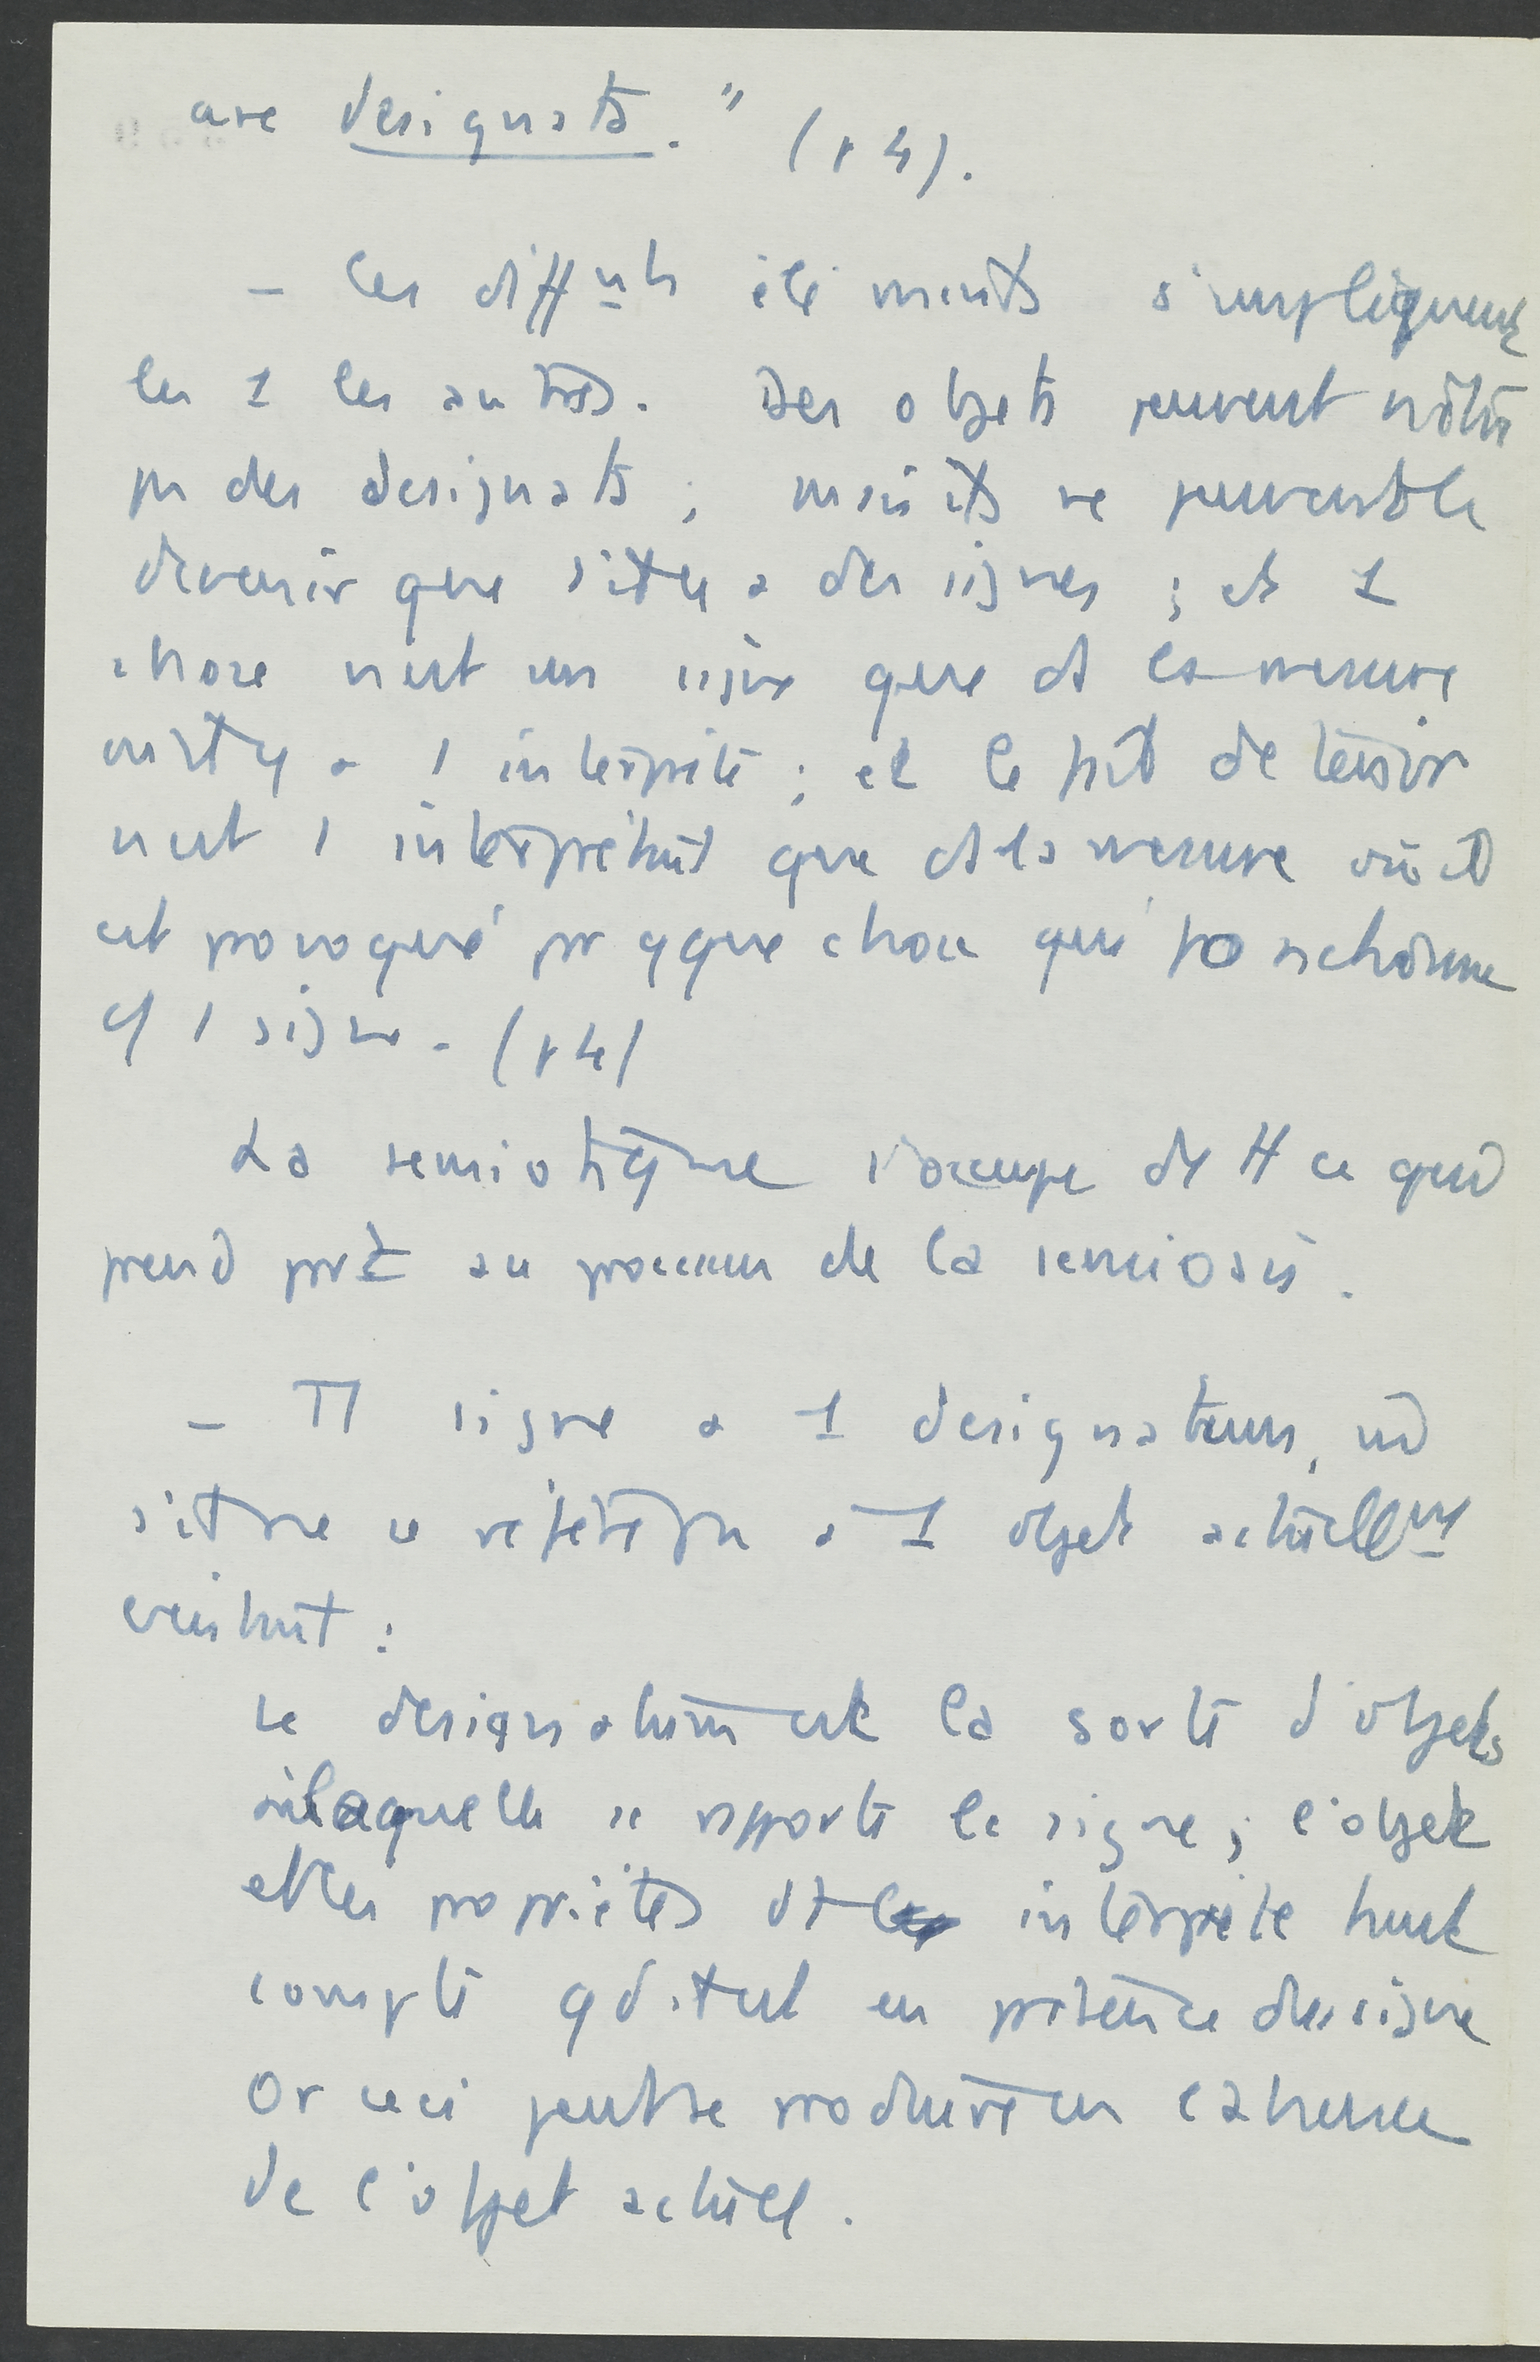 are designata." (p 4).
– Les diffnts éléments s'impliquent
les 1 les autres. Des objets peuvent n'être
pas des designata ; mais ils ne peuvent le
devenir que s'il y a des signes ; et 1
chose n'est un signe que ds la mesure
où il y a 1 interprète ; et le fait de
n'est 1 interprétant que ds la mesure où il
est provoqué par qque chose qui fonctionne
c/ 1 signe. (p 4)
La semiotique s'occupe de tt ce qui
prend part au processus de la semiosis.
– Tt signe a 1 designatum, mais
tt signe ne réfère pas à 1 objet actuellmt
existant :
Le designatum est la sorte d'objets
à laquelle se rapporte le signe ; l'objet
et les propriétés dt l' interprète tient
compte qd il est en présence du signe
Or ceci peut se produire en l'absence
de l'objet actuel.